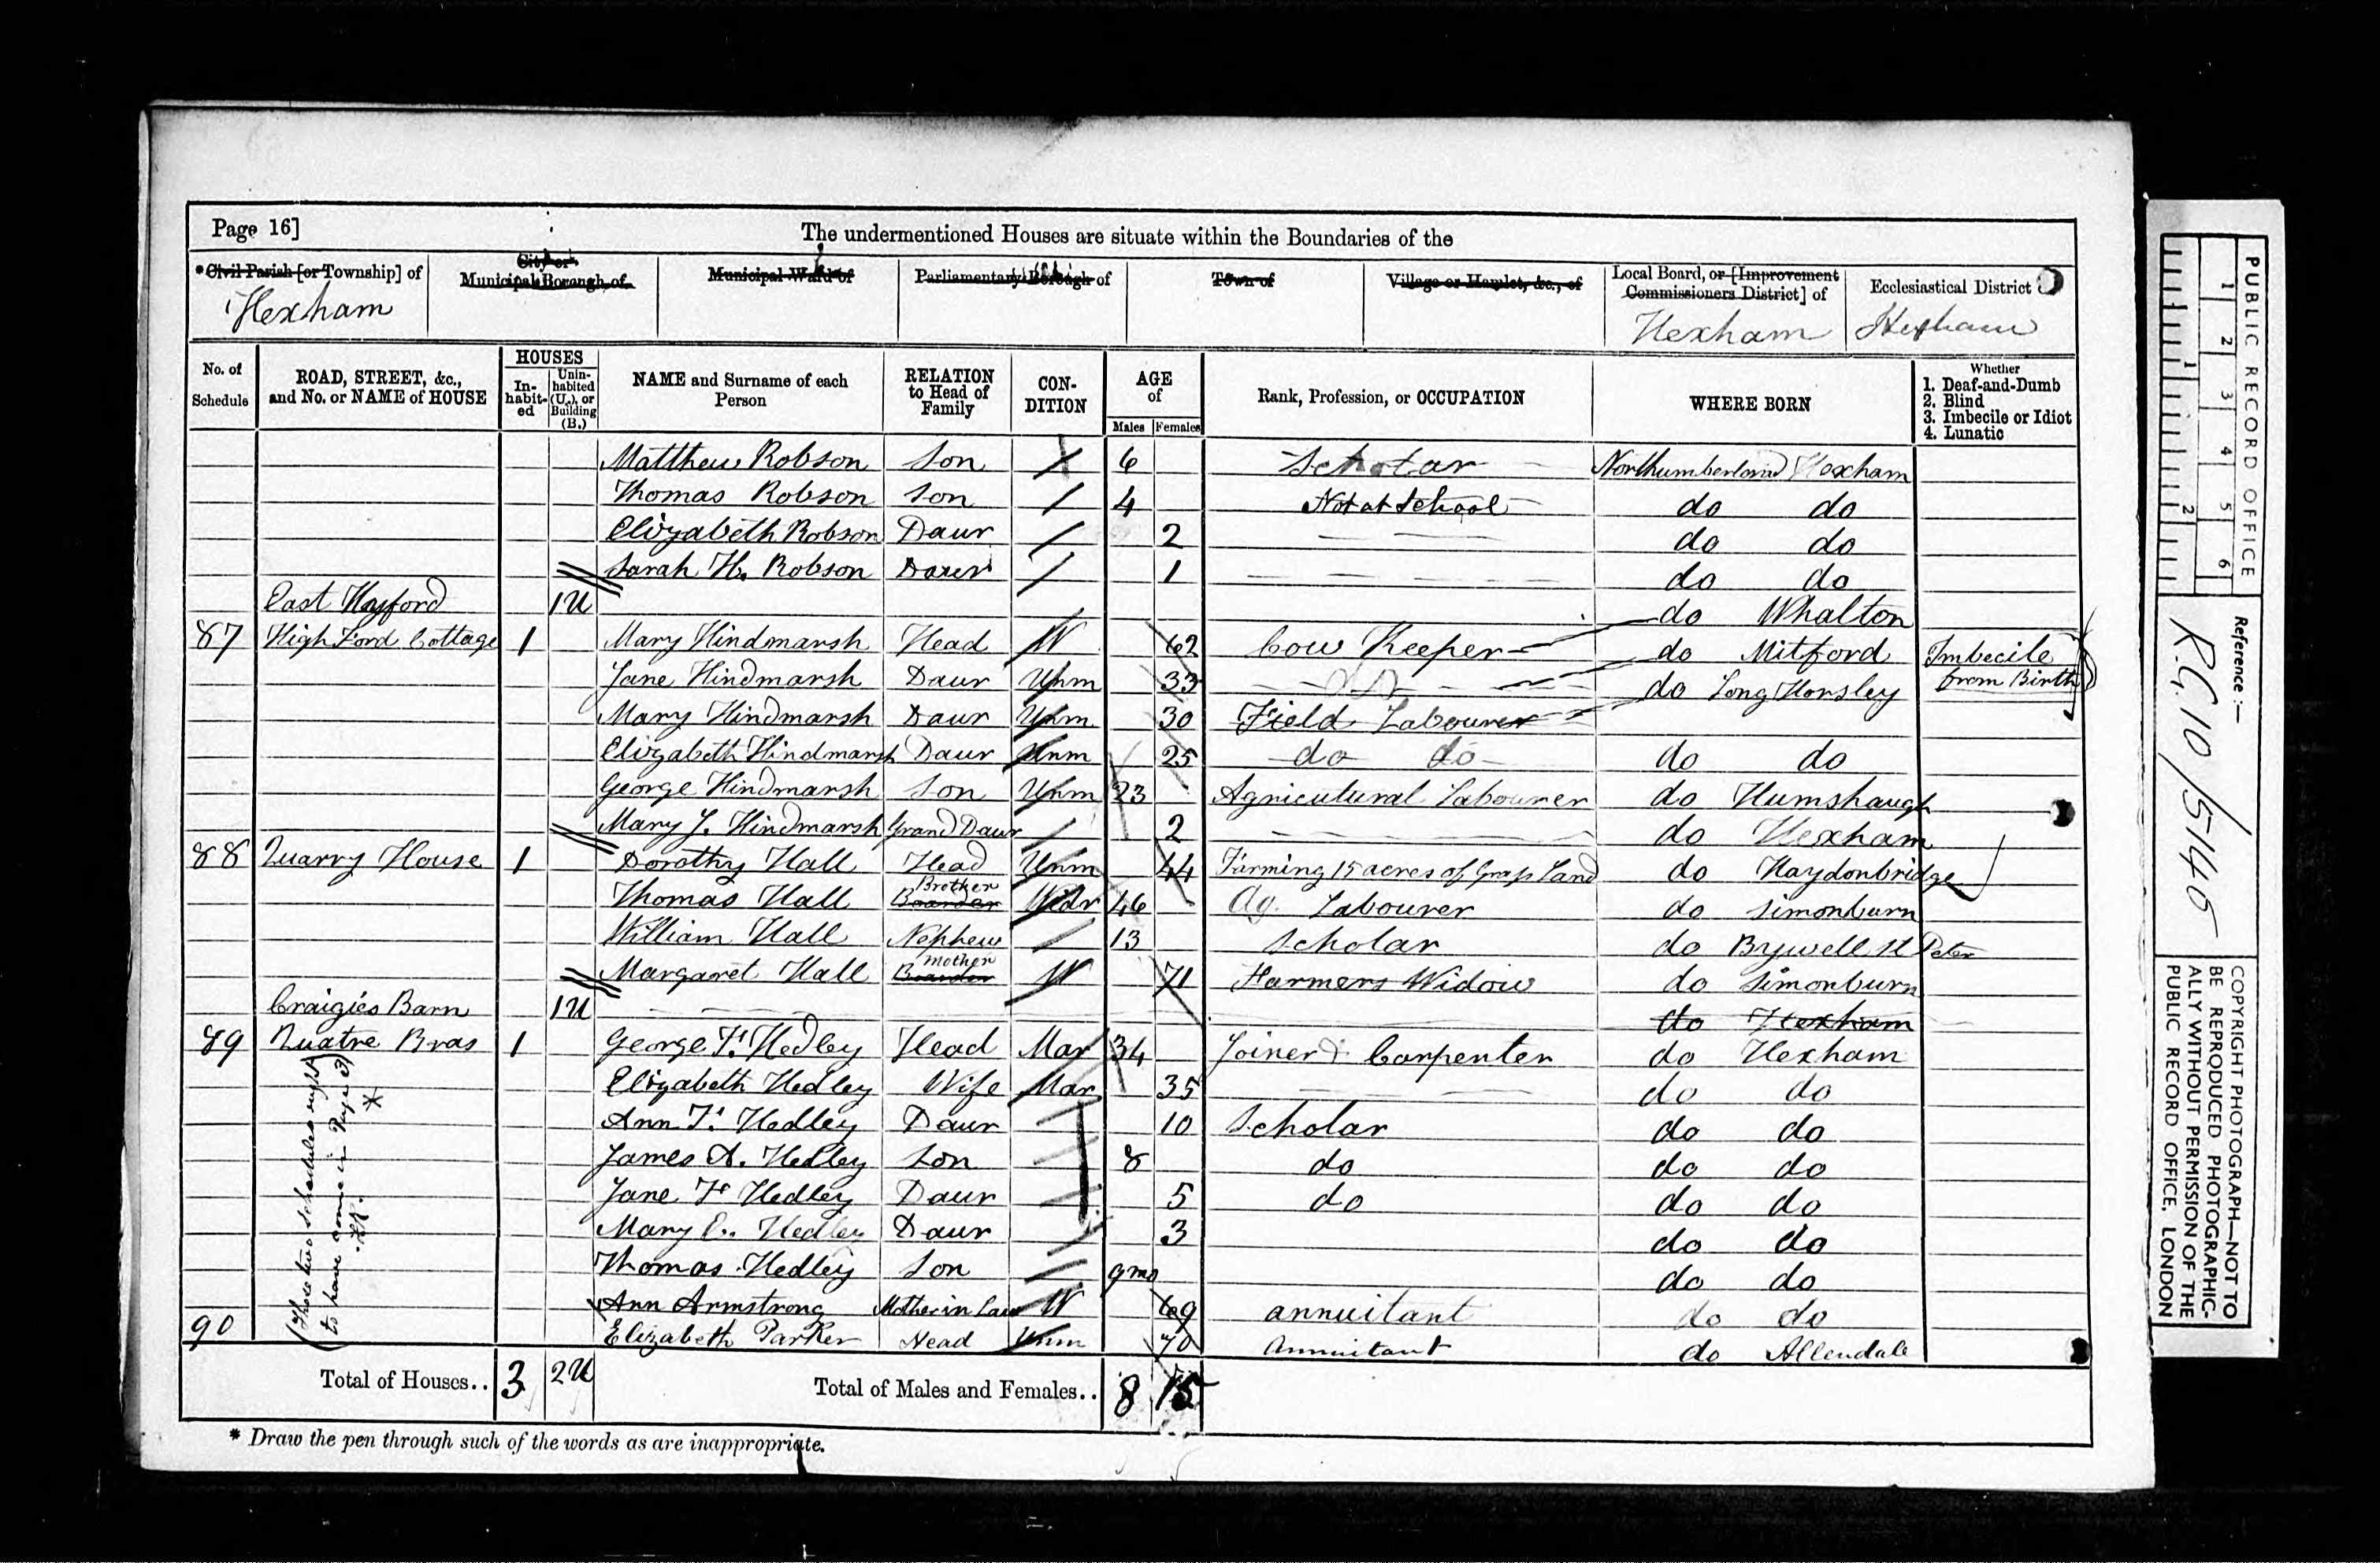 Page 16]
The undermentioned Houses are situate within the Boundaries of the
*Civil Parish [or Township] of
Hexham
City or Municipal Borough of
Municipal Ward of
Parliamentary Borough of
Town of
Village or Hamlet, &c., of
Local Board, or [Improvement Commissioners District] of
Hexham
Ecclesiastical District
Hexham
No. of Schedule
ROAD, STREET, &c., and No. or NAME of HOUSE
HOUSES
In-habit-ed
Unin-habited (U.), or Building (B.)
NAME and Surname of each Person
RELATION to Head of Family
CON-DITION
AGE of
Males Females
Rank, Profession, or OCCUPATION
WHERE BORN
Whether
1. Deaf-and-Dumb
2. Blind
3. Imbecile or Idiot
4. Lunatic
Matthew Robson Son 6 Scholar Northumberland Hexham
Thomas Robson Son 4 Not at School do do
Elizabeth Robson Daur 2 do do
Sarah H. Robson Daur 1 do do
East Hayford 1U do Whalton
87 High Ford Cottage 1 Mary Hindmarsh Head W 62 Cow Keeper do Mitford Imbecile
Jane Hindmarsh Daur Unm 33 do Long Horsley from Birth
Mary Hindmarsh Daur Unm 30 Field Labourer
Elizabeth Hindmarsh Daur Unm 25 do do do do
George Hindmarsh Son Unm 23 Agricultural Labourer do Humshaugh
Mary J. Hindmarsh Grand Daur 2 do Hexham
88 Quarry House 1 Dorothy Hall Head Unm 44 Farming 15 acres of Grass Land do Haydonbridge
Thomas Hall Boarder Brother Widr 46 Ag. Labourer do Simonburn
William Hall Nephew 13 Scholar do Bywell St Peter
Margaret Hall Boarder Mother W 71 Farmers Widow do Simonburn
Craigies Barn 1U do Hexham
89 Quatre Bras 1 George F. Hedley Head Mar 34 Joiner & Carpenter do Hexham
Elizabeth Hedley Wife Mar 35 do do
Ann F. Hedley Daur 10 Scholar do do
James A. Hedley Son 8 do do do
Jane F Hedley Daur 5 do do do
Mary E. Hedley Daur 3 do do
Thomas Hedley Son 9mo do do
Ann Armstrong Mother in Law W 69 annuitant do do
90 Elizabeth Parker Head Unm 70 Annuitant do Allendale
(These two schedules ought
to have come in Page 3)
*
Total of Houses.. 3 2U
Total of Males and Females.. 8 15
* Draw the pen through such of the words as are inappropriate.
PUBLIC RECORD OFFICE
1 2 3 4 5 6
1 2
Reference :—
R.G. 10/5145
COPYRIGHT PHOTOGRAPH—NOT TO
BE REPRODUCED PHOTOGRAPHIC-
ALLY WITHOUT PERMISSION OF THE
PUBLIC RECORD OFFICE, LONDON